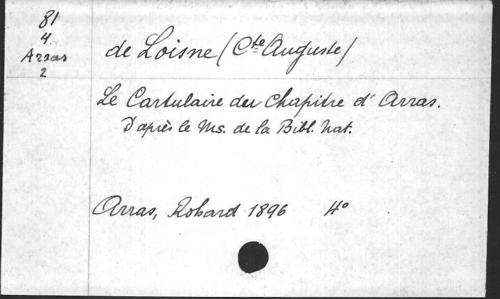 81
4.
Arras
2
de Loisne (Cte Auguste)
Le Cartulaire du Chapitre d'Arras.
D'après le Ms. de la Bibl. Nat.
Arras, Rohard 1896 4°